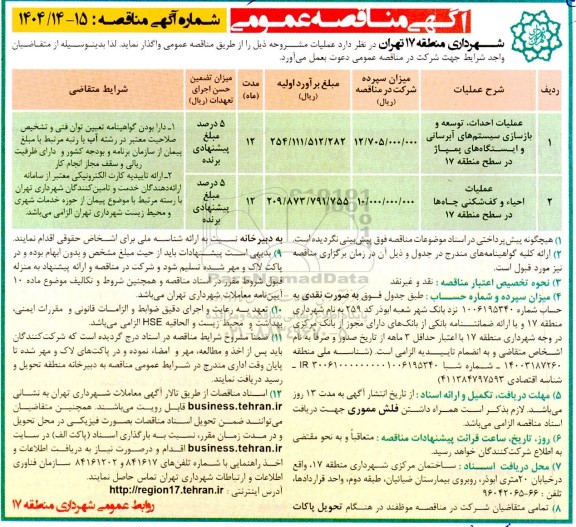 آگهی مناقصه عمومی
شماره آگهی مناقصه: ۱۵-۱۴۰۴/۱۴
شهرداری منطقه ۱۷ تهران در نظر دارد عملیات مشروحه ذیل را از طریق مناقصه عمومی واگذار نماید. لذا بدینوسیله از متقاضیان
واجد شرایط جهت شرکت در مناقصه عمومی دعوت بعمل می‌آورد.
ردیف
شرح عملیات
میزان سپرده شرکت در مناقصه (ریال)
مبلغ برآورد اولیه (ریال)
مدت (ماه)
میزان تضمین حسن اجرای تعهدات (ریال)
شرایط متقاضی
۱
عملیات احداث، توسعه و
بازسازی سیستم‌های آبرسانی
و ایستگاه‌های پمپاژ
در سطح منطقه ۱۷
۱۲/۷۰۵/۰۰۰/۰۰۰
۲۵۴/۱۱۱/۵۱۲/۲۸۲
۱۲
۵ درصد
مبلغ
پیشنهادی
برنده
۱ـ دارا بودن گواهینامه تعیین توان فنی و تشخیص
صلاحیت معتبر در رشته آب با رتبه مرتبط با مبلغ
پیمان از سازمان برنامه و بودجه کشور و دارای ظرفیت
ریالی و سقف مجاز انجام کار
۲ـ ارائه تاییدیه کارت الکترونیکی معتبر از سامانه
ارائه‌دهندگان خدمت و تامین‌کنندگان شهرداری تهران
با رسته مرتبط با موضوع پیمان از حوزه خدمات شهری
و محیط زیست شهرداری تهران الزامی می‌باشد.
۲
عملیات
احیاء و کف‌شکنی چاه‌ها
در سطح منطقه ۱۷
۱۰/۰۰۰/۰۰۰/۰۰۰
۲۰۹/۸۷۳/۷۹۱/۷۵۵
۱۲
۵ درصد
مبلغ
پیشنهادی
برنده
۱) هیچگونه پیش‌پرداختی در اسناد موضوعات مناقصه فوق پیش‌بینی نگردیده است.
۲) ارائه کلیه گواهینامه‌های مندرج در جدول و ذیل آن در زمان برگزاری مناقصه
نیز مورد قبول است.
۳) نحوه تخصیص اعتبار مناقصه: نقد و غیرنقد
۴) میزان سپرده و شماره حساب: طبق جدول فوق به صورت نقدی به
حساب شماره ۱۰۰۶۱۹۵۳۴۰ نزد بانک شهر شعبه ابوذر کد ۲۵۹ به نام شهرداری
منطقه ۱۷ و یا ارائه ضمانتنامه بانکی از بانک‌های دارای مجوز از بانک مرکزی
در وجه شهرداری منطقه ۱۷ با اعتبار حداقل ۳ ماهه از تاریخ صدور و صرفاً به نام
اشخاص متقاضی و به انضمام تاییدیه الزامی است. (شناسه ملی منطقه
شناسه اقتصادی ۴۱۱۳۸۴۷۹۷۵۹۳)
۵) مهلت دریافت، تکمیل و ارائه اسناد: از تاریخ انتشار آگهی به مدت ۱۳ روز
می‌باشد. لازم بذکر است همراه داشتن فلش مموری جهت دریافت
اسناد مناقصه الزامی می‌باشد.
۶) روز، تاریخ، ساعت قرائت پیشنهادات مناقصه: متعاقباً و به نحو مقتضی
به اطلاع شرکت‌کنندگان خواهد رسید.
۷) محل دریافت اسناد: ساختمان مرکزی شهرداری منطقه ۱۷، واقع
درخیابان ۲۰متری ابوذر، روبروی بیمارستان ضیائیان، طبقه دوم، واحد قراردادها،
تلفن: ۶۶-۹۶۰۴۲۰۶۵
۸) تمامی متقاضیان شرکت در مناقصه موظفند در هنگام تحویل پاکات
به دبیرخانه نسبت به ارائه شناسه ملی برای اشخاص حقوقی اقدام نمایند.
۹) بدیهی است پیشنهادات باید از حیث مبلغ مشخص و بدون ابهام بوده و در
پاکت لاک و مهر شده تسلیم شود و شرکت در مناقصه و ارائه پیشنهاد به منزله
قبول شروط مقرر در اسناد مناقصه و همچنین شروط و تکالیف موضوع ماده ۱۰
آیین‌نامه معاملات شهرداری تهران می‌باشد.
۱۰) تعهد به رعایت و اجرای دقیق ضوابط و الزامات قانونی و مقررات ایمنی،
بهداشت و محیط زیست و الحاقیه HSE الزامی می‌باشد.
۱۱) سایر شروط شرایط مناقصه در اسناد درج گردیده است که شرکت‌کنندگان
باید پس از اخذ و مطالعه، مهر و امضاء نموده و در پاکت‌های لاک و مهر شده تا
پایان وقت اداری مندرج در شرایط عمومی مناقصه به دبیرخانه منطقه تحویل و
رسید دریافت نمایند.
۱۲) اسناد مناقصات از طریق تالار آگهی معاملات شهرداری تهران به نشانی
business.tehran.ir قابل رویت می‌باشند. همچنین متقاضیان
می‌توانند ضمن تحویل اسناد مناقصات بصورت فیزیکی در محل تحویل
و در مدت زمان مقرر، نسبت به بارگذاری اسناد (پاکت الف) در سایت
business.tehran.ir اقدام و درصورت نیاز به دریافت اطلاعات و
اخذ راهنمایی با شماره تلفن‌های ۸۴۱۶۱۷ و ۸۴۱۶۱۲۰۲ سازمان فناوری
اطلاعات و ارتباطات شهرداری تهران تماس حاصل نمایند.
آدرس اینترنتی: http://region17.tehran.ir
روابط عمومی شهرداری منطقه ۱۷
ParsNamadData